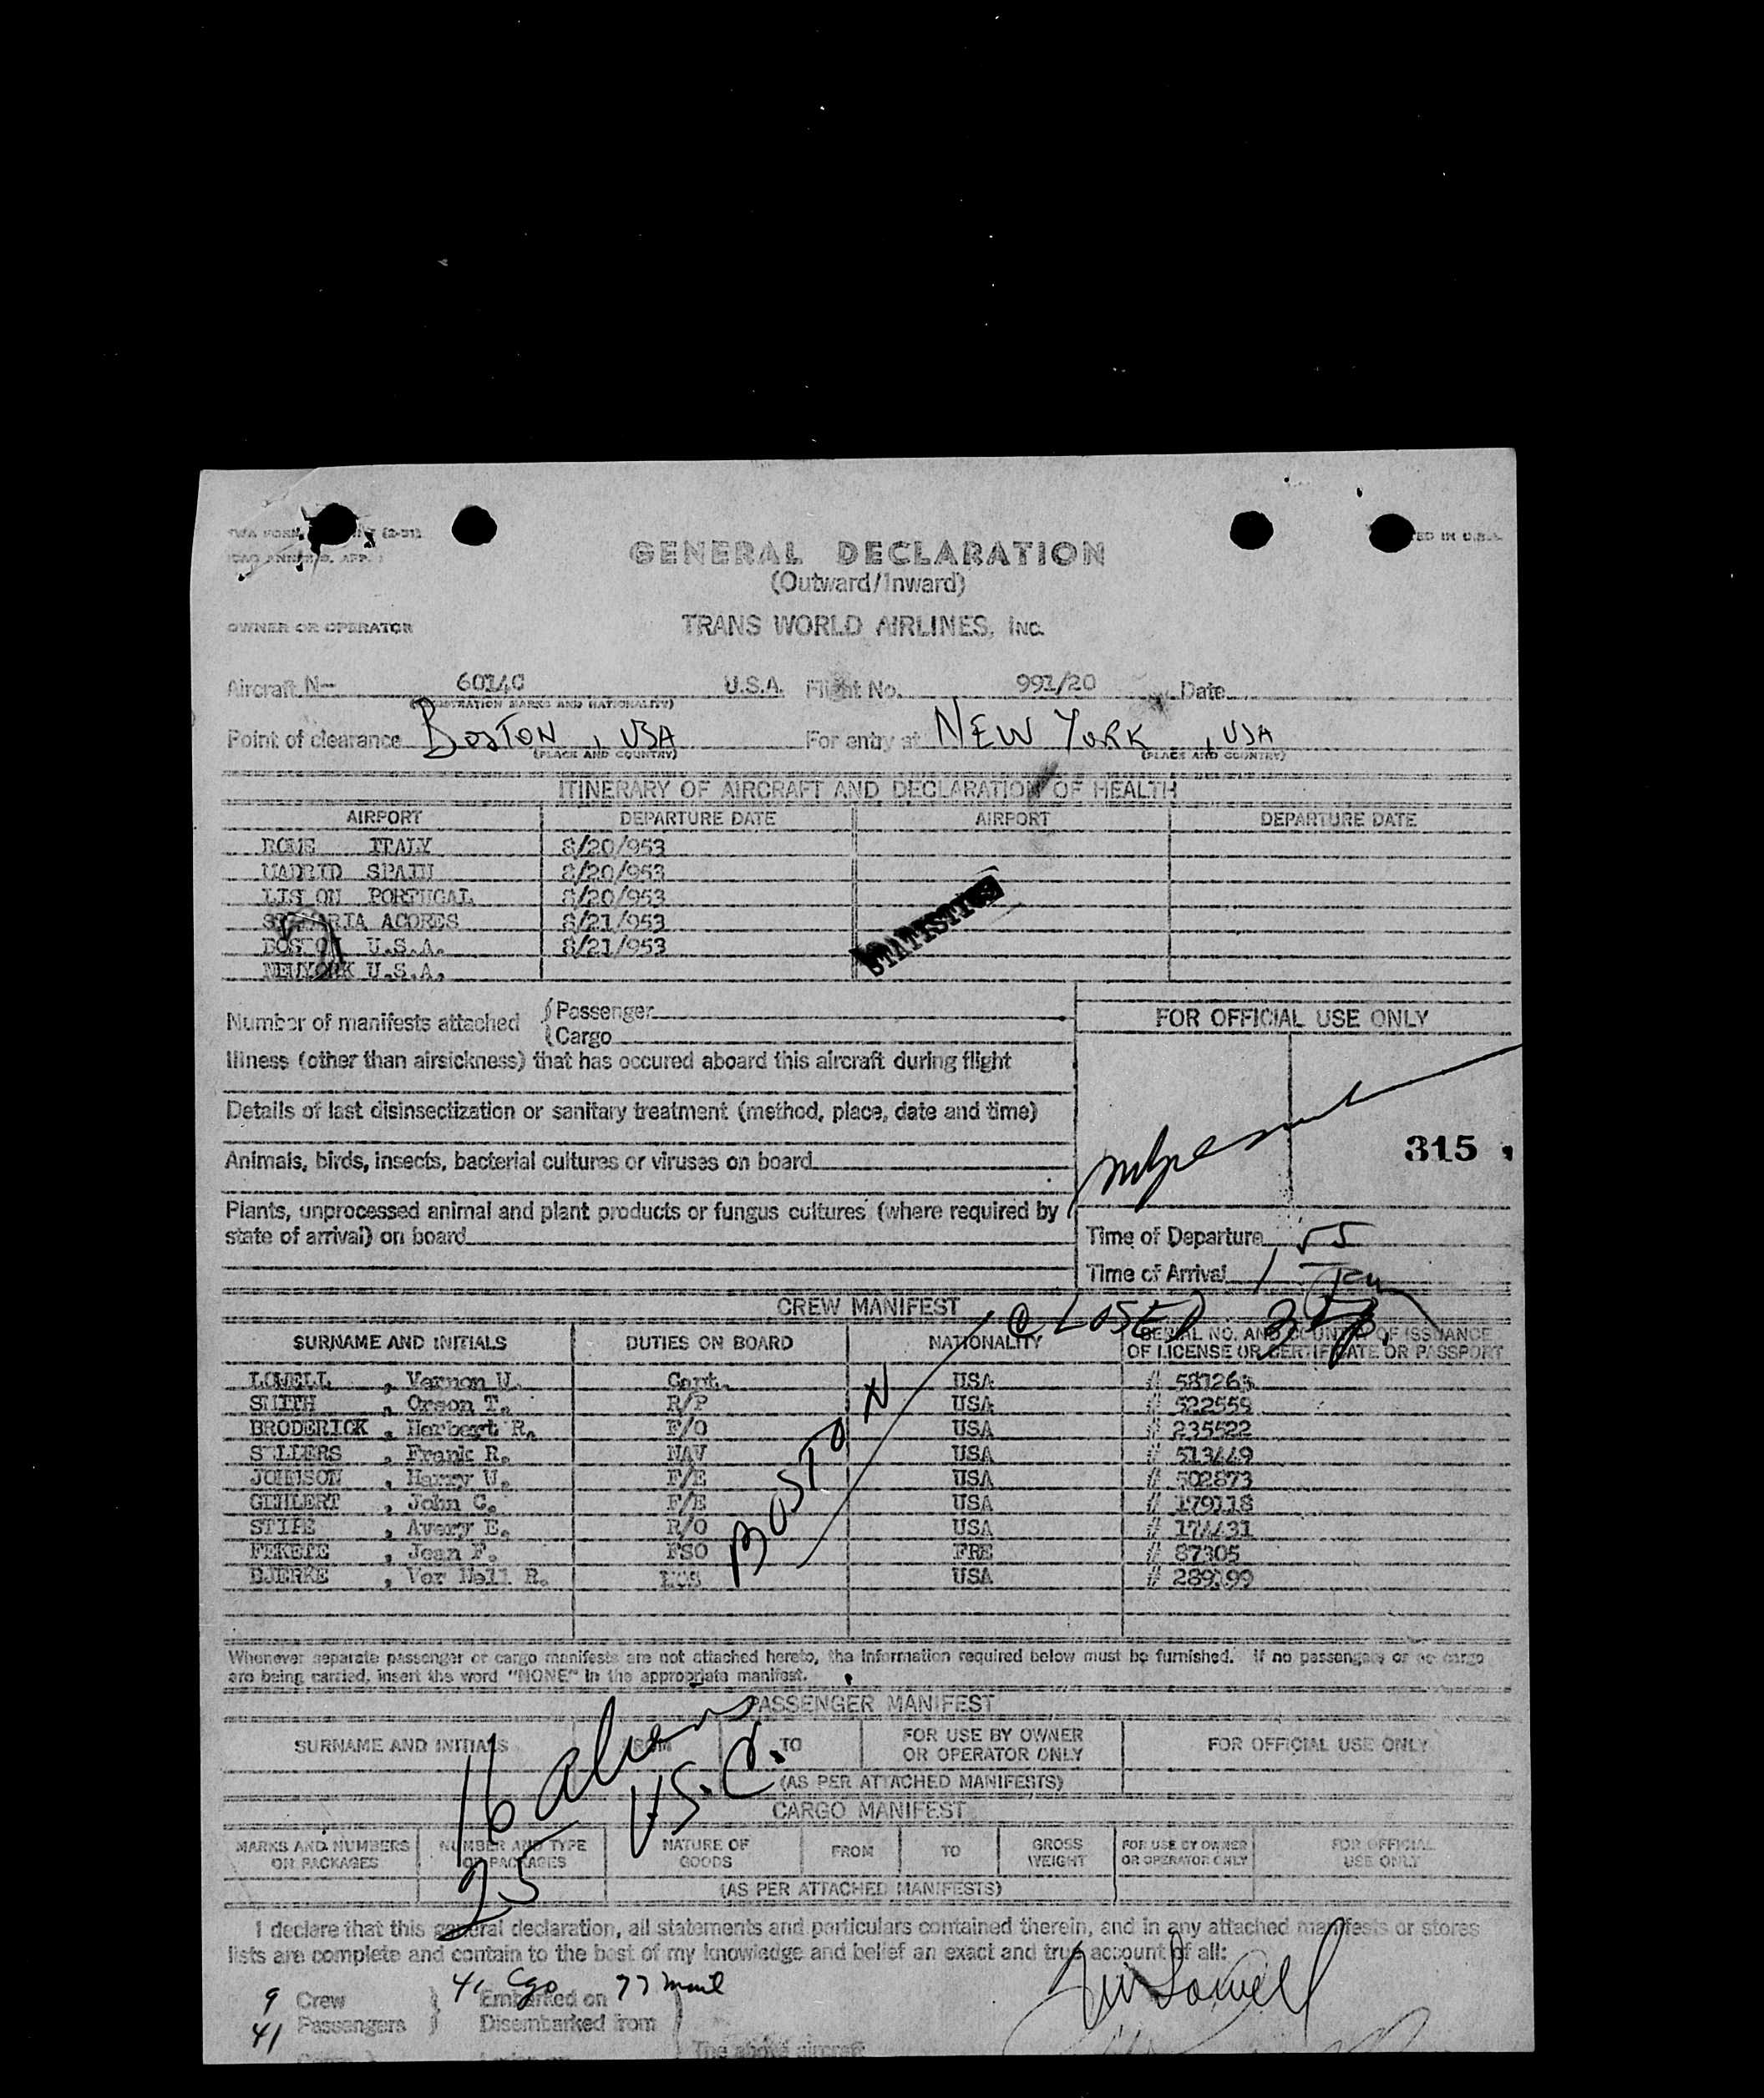 GENERAL DECLARATION
(Outward/Inward)
OWNER OR OPERATOR
TRANS WORLD AIRLINES, INC.
Aircraft N- 6014C U.S.A. Flight No. 991/20 Date
(REGISTRATION MARKS AND NATIONALITY)
Point of clearance BOSTON, USA For entry at NEW YORK, USA
(PLACE AND COUNTRY) (PLACE AND COUNTRY)
ITINERARY OF AIRCRAFT AND DECLARATION OF HEALTH
AIRPORT DEPARTURE DATE AIRPORT DEPARTURE DATE
ROME ITALY 8/20/953
MADRID SPAIN 8/20/953
LIS ON PORTUGAL 8/20/953
MARIA ACORES 8/21/953
BOSTON U.S.A. 8/21/953
NEWYORK U.S.A.
STATISTICS
Number of manifests attached
Passenger
Cargo
FOR OFFICIAL USE ONLY
Illness (other than airsickness) that has occured aboard this aircraft during flight
Details of last disinsectization or sanitary treatment (method, place, date and time)
315
Animals, birds, insects, bacterial cultures or viruses on board
Plants, unprocessed animal and plant products or fungus cultures (where required by
state of arrival) on board
Time of Departure
Time of Arrival
CREW MANIFEST
CLOSED
BOSTON
SURNAME AND INITIALS DUTIES ON BOARD NATIONALITY SERIAL NO. AND COUNTRY OF ISSUANCE
OF LICENSE OR CERTIFICATE OR PASSPORT
LOWELL , Vernon W. Capt. USA # 581263
SMITH , Orson T. R/P USA # 522559
BRODERICK , Herbert R. F/O USA # 235522
S LLERS , Frank R. NAV USA # 513449
JOHNSON , Harry W. F/E USA # 502873
GEHLERT , John C. F/E USA # 179118
STIPE , Avery E. R/O USA # 174431
FEKETE , Jean F. FSO FRE # 87305
BJERKE , Vor Nell R. USA # 289199
Whenever separate passenger or cargo manifests are not attached hereto, the information required below must be furnished. If no passengers or no cargo
are being carried, insert the word "NONE" in the appropriate manifest.
PASSENGER MANIFEST
SURNAME AND INITIALS FROM TO FOR USE BY OWNER
OR OPERATOR ONLY
FOR OFFICIAL USE ONLY
(AS PER ATTACHED MANIFESTS)
16 aliens
25 U.S.C.
CARGO MANIFEST
MARKS AND NUMBERS
ON PACKAGES
NUMBER AND TYPE
OF PACKAGES
NATURE OF
GOODS
FROM TO GROSS
WEIGHT
FOR USE BY OWNER
OR OPERATOR ONLY
FOR OFFICIAL
USE ONLY
(AS PER ATTACHED MANIFESTS)
I declare that this general declaration, all statements and particulars contained therein, and in any attached manifests or stores
lists are complete and contain to the best of my knowledge and belief an exact and true account of all:
9 Crew 41 Cgo Embarked on 77 mail
41 Passengers Disembarked from
The above aircraft